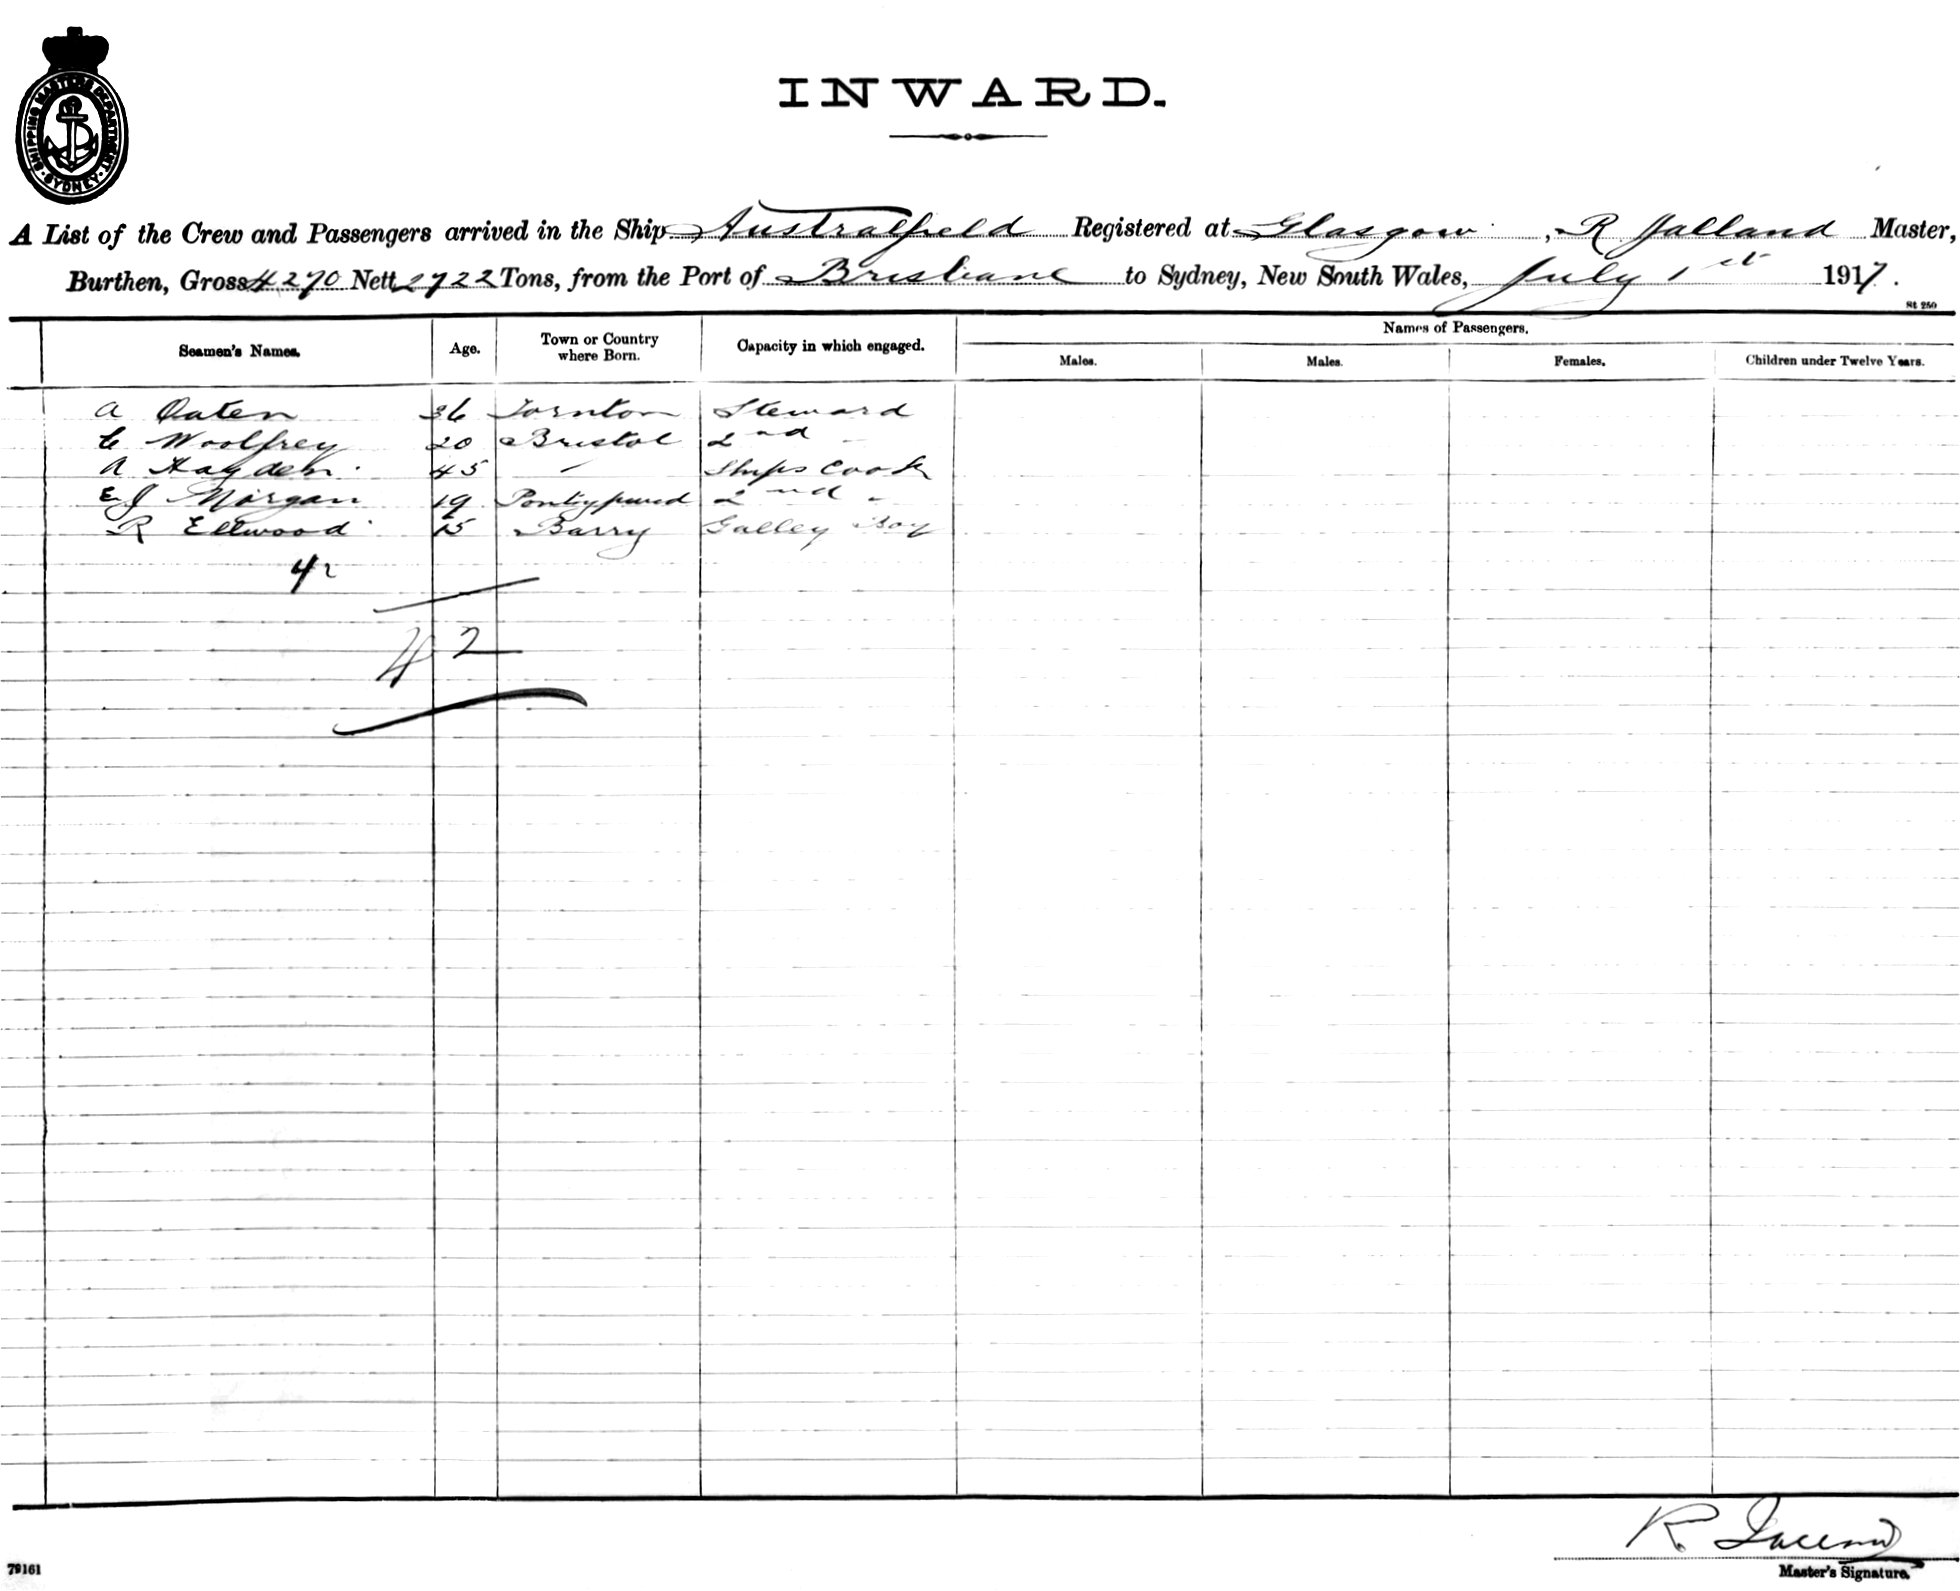 SHIPPING MASTERS DEPARTMENT
SYDNEY
INWARD.
A List of the Crew and Passengers arrived in the Ship Australfield Registered at Glasgow, R Jalland Master,
Burthen, Gross 4270 Nett 2722 Tons, from the Port of Brisbane to Sydney, New South Wales, July 1st 1917.
St 250
Names of Passengers.
Seamen's Names. Age. Town or Country where Born. Capacity in which engaged. Males. Males. Females. Children under Twelve Years.
A Oaten 36 Tornton Steward
C Woolfrey 20 Bristol 2nd "
A Hayden 45 " Ships Cook
E J Morgan 19 Pontypured 2nd "
R Ellwood 15 Barry Galley Boy
42
42
R. Jalland
79161 Master's Signature.